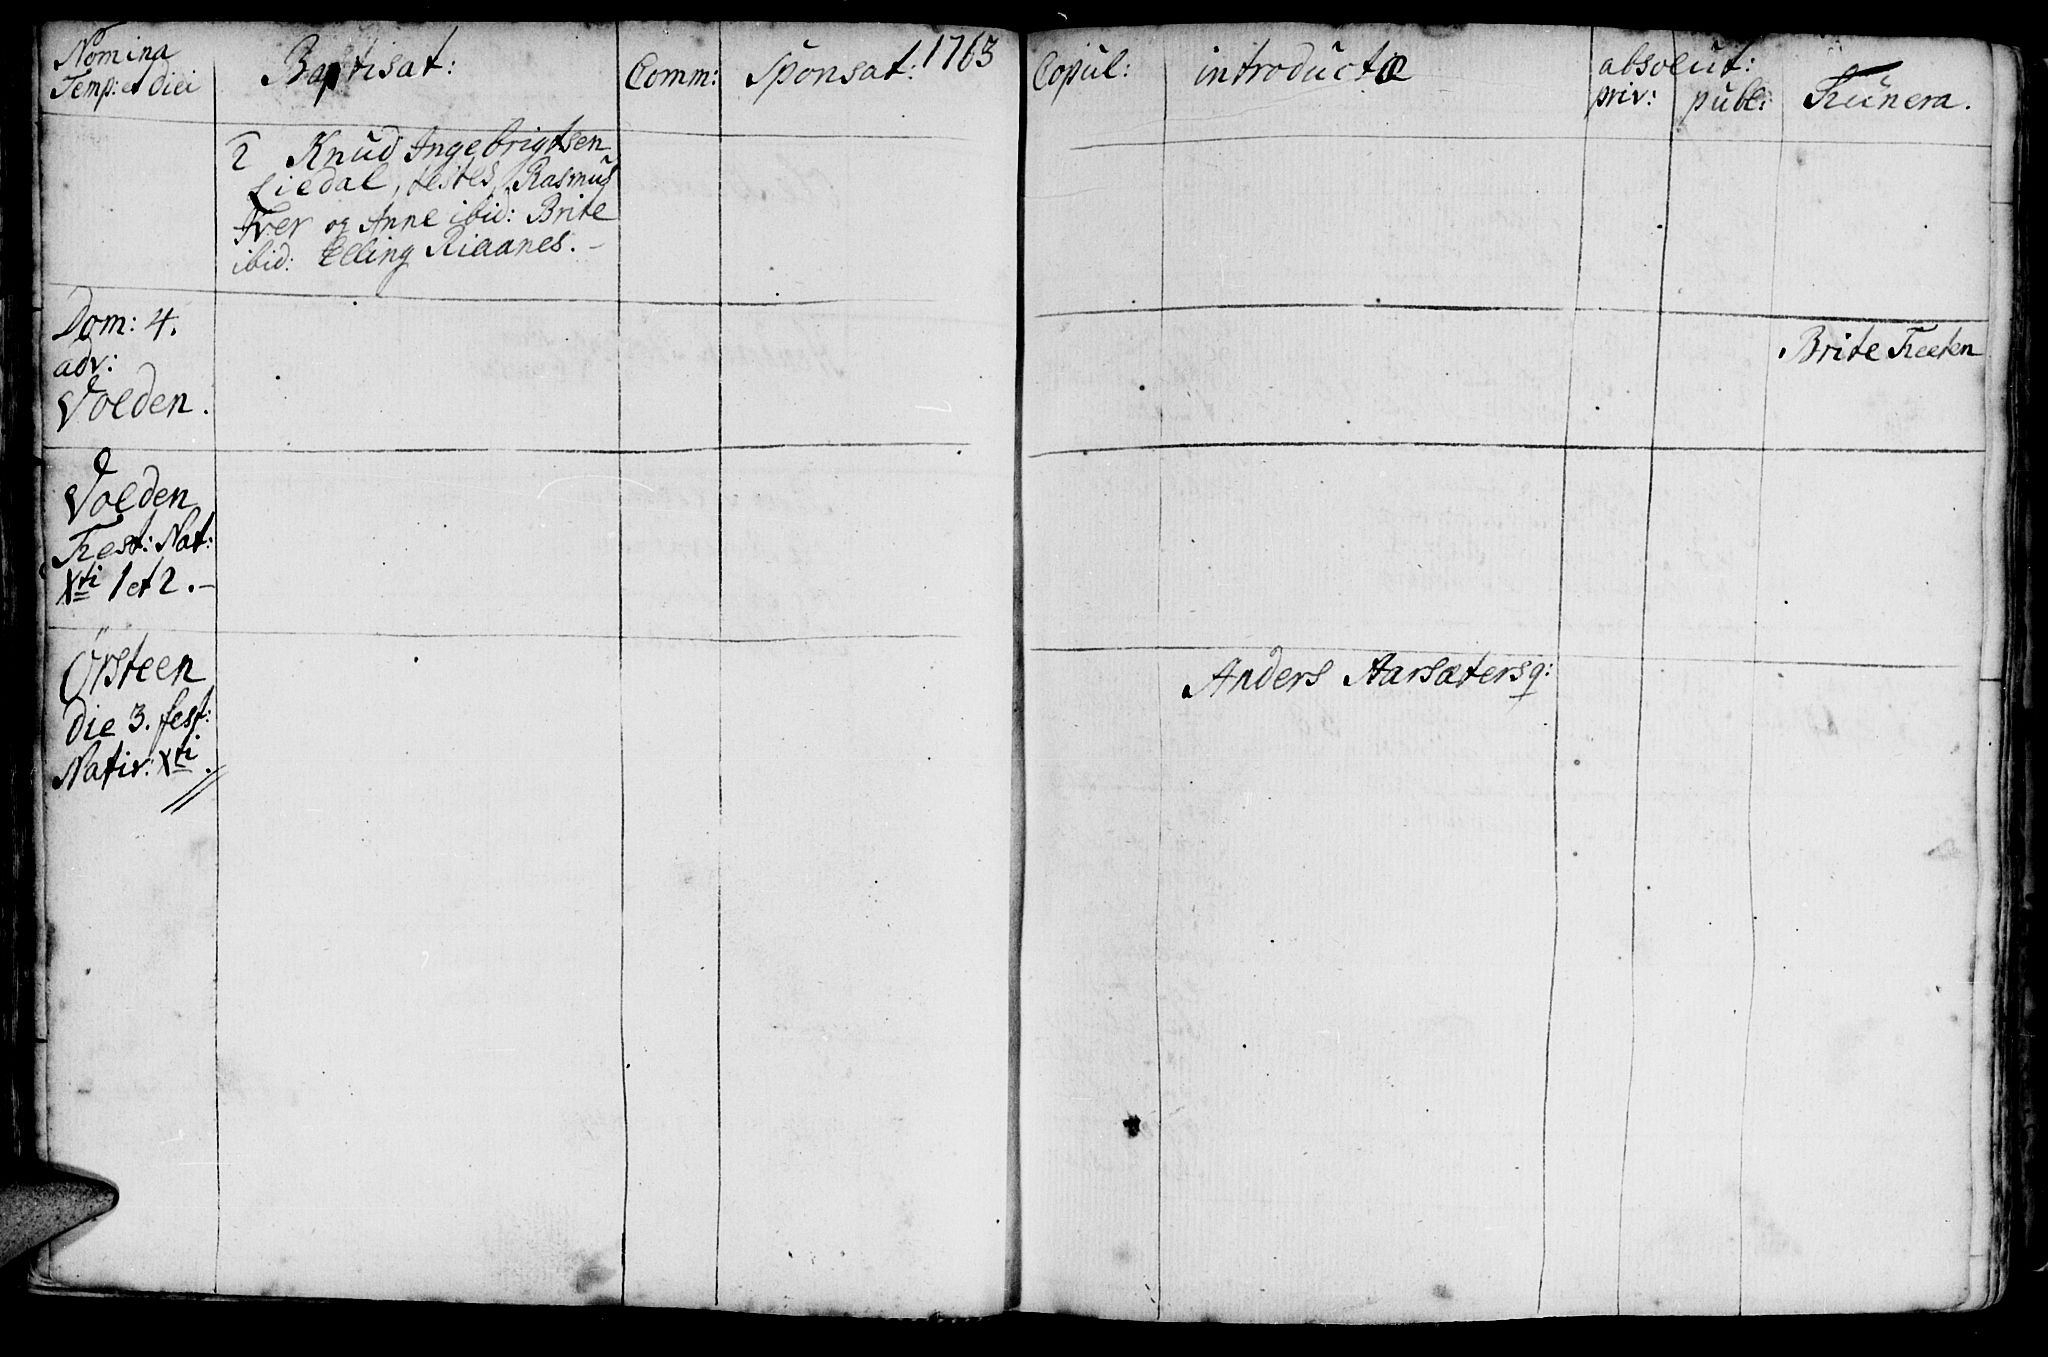 Nomina
Temp: et diei
Baptisat:
Comm:
Sponsat:
1763
Copul:
introductæ
absolut:
priv:
publ:
Funera.
2 Knud Ingebrigtsen
Liedal, testes Rasmus
Iver og Anne ibid: Brite
ibid: Elling Riaanes. -
Dom: 4.
adv:
Volden.
Brite Feeten
Volden
Fest: Nat:
Xti 1 et 2. -
Örsteen
die 3. fest:
Nativ: Xti.
Anders Aarsætersq: